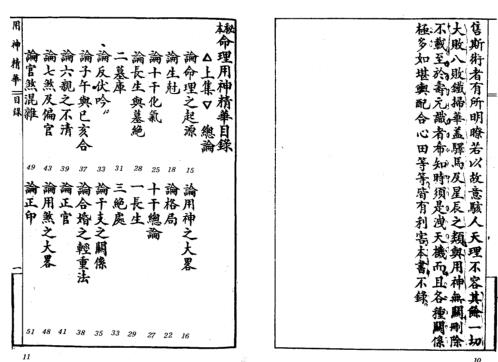 售斯術者有所明瞭若以故意駭人天理不容其餘一切
大敗八敗鐵掃華蓋驛馬及星辰之類與用神無關刪除
不載至於壽元識者布知時須是洩天機而且各種關係
極多如堪輿配合心田等等皆有利害本書不錄
10
秘本命理用神精華目錄
△上集▽ 總論
論命理之起源 15 論用神之大畧 16
論生尅 18 論格局 22
論十干化氣 25 十干總論 27
論長生與墓絕 28 一長生 29
二墓庫 31 三絕處 33
論反伏吟 33 論干支之關係 35
論子午與巳亥合 37 論合婚之輕重法 38
論六親之不清 39 論正官 41
論七煞及偏官 43 論用煞之大畧 48
論官煞混雜 49 論正印 51
用神精華 目錄 一
11